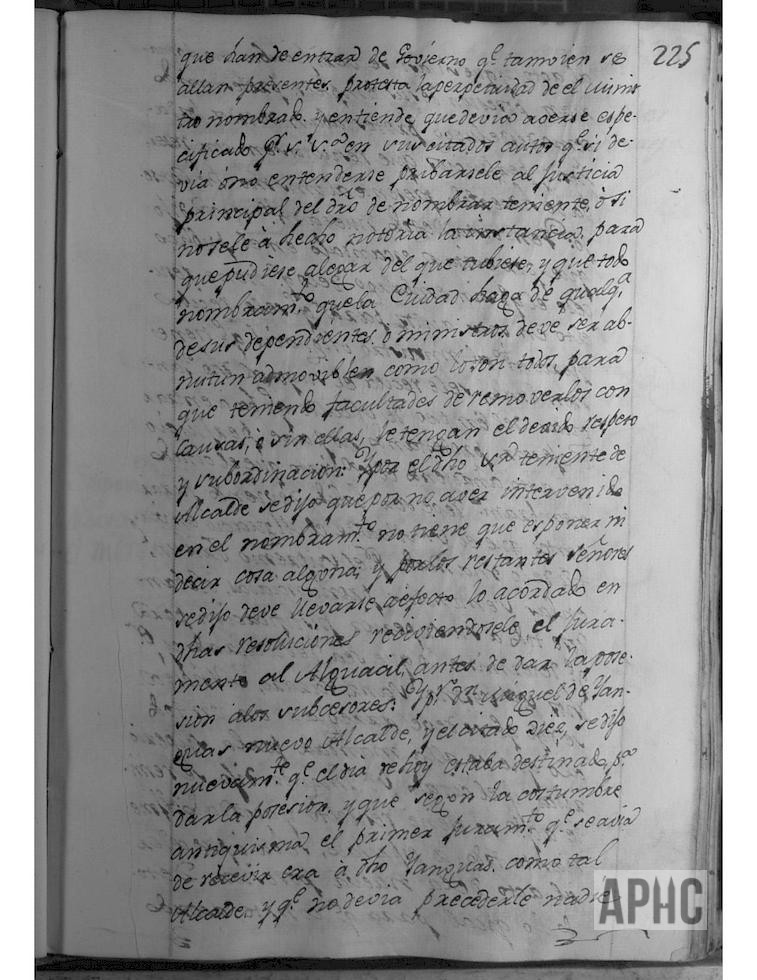 225
que han de entrar de Govierno q.e tamvien se
allan presentes, protesta la perpetuidad de el minis
tro nombrado. y entiende, que devia averse espe-
cificado p.r s. s.a en sus citados autos q.e si de-
via ó no entenderse pribarsele al Justicia
principal del dro de nombrar teniente, ó si
no se le à hecho notoria la instancia, para
que pudiese alegar del que tubiese, y que todo
nombram.to que la Ciudad haga de qualq.a
de sus dependientes, o ministros deve ser ab-
nutun admoviblen como lo son todos, para
que teniendo facultades de removerlos con
causas, o sin ellas, le tengan el devido respeto
y subordinacion: Y por el dho s.r teniente de
Alcalde se dijo que por no aver intervenido
en el nombram.to no tiene que esponer ni
decir cosa alguna; y por los restantes señores
se dijo deve llevarse a efecto lo acordado en
dhas resoluciones reciviendosele el Jura-
mento al Alguacil, antes de dar la pose-
sion a los subcesores: Y p.r D.n Miguel de Yan-
guas nuevo Alcalde, y el citado Diez, se dijo
nuevam.te q.e el dia de hoy estaba destinado p.a
dar la posesion. y que segun la costumbre
antiquisima el primer Juram.to q.e se avia
de recevir era à dho Yanguas como tal
Alcalde, y q.e no devia precederle nadie
APHC